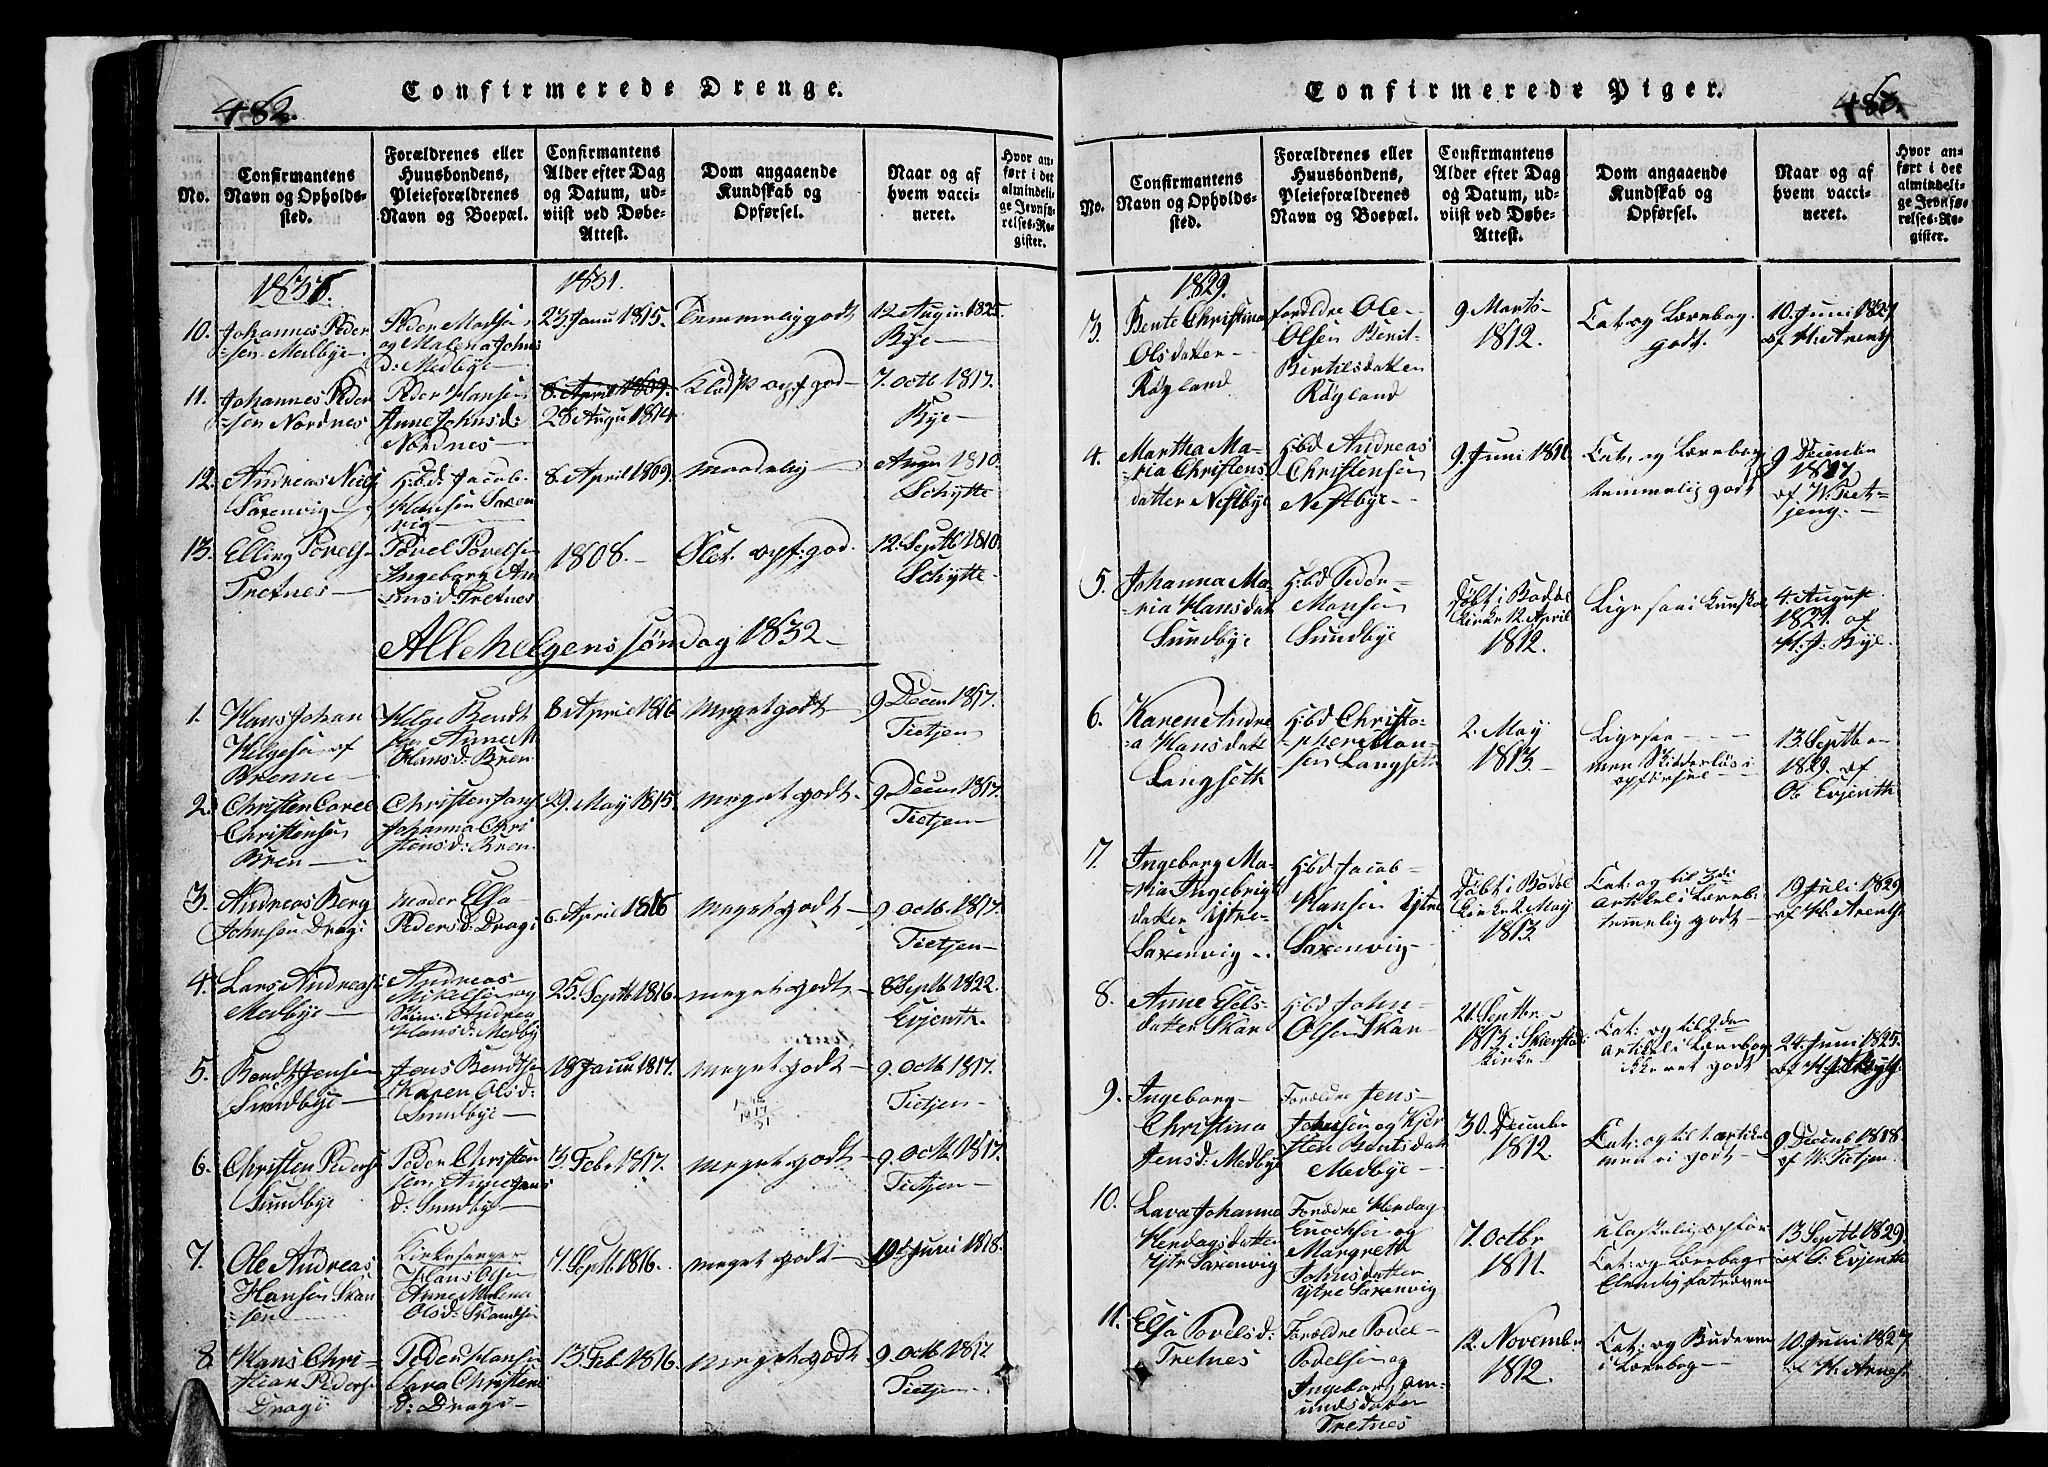 Confirmerede Drenge.
482.
No.
Confirmantens Navn og Opholdssted.
Forældrenes eller Huusbondens, Pleieforældrenes Navn og Boepæl.
Confirmantens Alder efter Dag og Datum, udviist ved Døbe-Attest.
Dom angaaende Kundskab og Opførsel.
Naar og af hvem vaccineret.
Hvor anført i det almindelige Jevnførelses-Register.
1831.
1831.
10.
Johannes Peder
-sen Medbye
Peder Madsen
og Malena Johns
d: Medbye
23 Janu 1815.
Temmelig godt
12 Augu 1825
Bye
11.
Johannes Peder
-sen Nordnes
Peder Hansen
Anne Johnsd:
Nordnes
8 April 1809.
28 Augu 1814
opf god
7. octb 1817.
Bye
12.
Andreas Niels
Saxenvig
Hbd: Jacob
Hansen Saxen
vig
8 April 1809
maadelig
Augu 1810
Schytte
13.
Elling Povels
Tretnes
Povel Povelsen
Ingeborg Am
unsd Tretnes
1808.
Slet. opf: god.
12. Septb 1810.
Schytte
Allehelgens søndag 1832
1.
Hans Johan
Helgesen af
Brenne
Helge Bendt
sen Anne M
Hansd: Bren
8 April 1816
meget godt
9 Decem 1817.
Tietjen
2.
Christen Carel
Christensen
Bren
Christen Jans
Johanna Chri
stensd: Bren
29. May 1815.
meget godt
9 Decem 1817.
Tietjen
3.
Andreas Berg
Johnsen Dragi
moder Elsa
Pedersd: Dragi
6. April 1816
meget godt
9 octb. 1817.
Tietjen
4.
Lars Andreas
Medbye
Andreas
Mikelsen og
Andrea
Hansd: Medby
25. Septb 1816
meget godt
8 Septb 1822.
Evjenth.
5.
Bendt Jensen
Sundbye
Jens Bendtsen
Karen Olsd:
Sundbye
18 Janu 1817.
meget godt
9. octb 1817.
Tietjen
6.
Christen Peders
Sundbye
Peder Christen
sen, Anne Jans
d: Sundby
3. Febr 1817.
meget godt
9. octb. 1817.
Tietjen
7.
Ole Andreas
Hansen Skan
sen
Kirkesanger
Hans Olsen
Anne Malena
Olsd: Skandsen
7. Septb 1816.
meget godt
19 Juni 1818.
8.
Hans Chri-
stian Peders
Dragi
Peder Hansen
Lava Christens
d: Dragi
13. Feb 1816.
meget godt
9 octb 1817
Tietjen
Confirmerede Piger.
483.
No.
Confirmantens Navn og Opholdssted.
Forældrenes eller Huusbondens, Pleieforældrenes Navn og Boepæl.
Confirmantens Alder efter Dag og Datum, udviist ved Døbe-Attest.
Dom angaaende Kundskab og Opførsel.
Naar og af hvem vaccineret.
Hvor anført i det almindelige Jevnførelses-Register.
1829.
3.
Bente Christina
Olsdatter
Røgland
forældre Ole
Olsen Berit
Bertilsdatter
Røgland
9 Marts
1812.
Cat: og Lærebog
godt.
10. Juni 1827
af H. Arentz
4.
Martha Ma-
-ria Christens
datter Nestbye
Hbd Andreas
Christensen
Nestbye
9. Juni 1811.
Cat: og Lærebog
temmelig godt
9 Decembr
1817
af W. Tiet-
jeng.
5.
Johanna Ma-
-ria Hansdat
Sundbye
Hbd Peder
Monsen
Sundbye
Døbt i Bodøe
Kirke 12 April
1812.
Ligesaa i Kunskab
4. August
1821. af
H. J. Bye.
6.
Karen Andre
-a Hansdatt
Langseth
Hbd Christo-
-pher Mon-
sen Langseth
2. May
1813.
Ligesaa
men Skiødesløs i
opførsel
13. Septb
1829. af
Ol Evjenth
7.
Ingeborg Ma-
-ria Ingebrigt
datter Ytre-
Saxenvig
Hbd Jacob
Hansen Ytre
Saxenvig
Døbt i Bodøe
Kirke 2 May
1813.
Cat: og til 3die
Artikel i Lærebo:
temmelig godt
19 Juli 1829
af H. Arentz
8.
Anne Elels-
datter Skar
Hbd John
Olsen Skar
21. Septbr.
1813 i Skierstad
Kirke
Cat: og til 2den
Artikel i Lærebog
ikke ret godt
24. Juni 1825.
af H.
9.
Ingeborg
Christina
Jensd: Medbye
Forældre Jens
Johnsen og Kjer
sten Bentsdatt
Medbye
30. Decembr
1812.
Cat: og til 1. artikel
men ei godt
9 Decemb 1818.
af W. Tietjen.
10.
Lava Johanna
Hendagsdatter
Ytre Saxenvig
Forældre Hendag
Enochsen og
Margreth
Johnsdatter
Ytre Saxenvig
7. octbr
1811.
Cat: og Lærebog
13. Septb 1829.
af O. Evjenth
11.
Elsa Povelsd:
Tretnes
Forældre Povel
Povelsen og
Ingeborg Am-
undsdatter
Tretnes
12. November
1812.
Cat: og Buderne
i Lærebog
10. Juni 1827
af H. Arentz